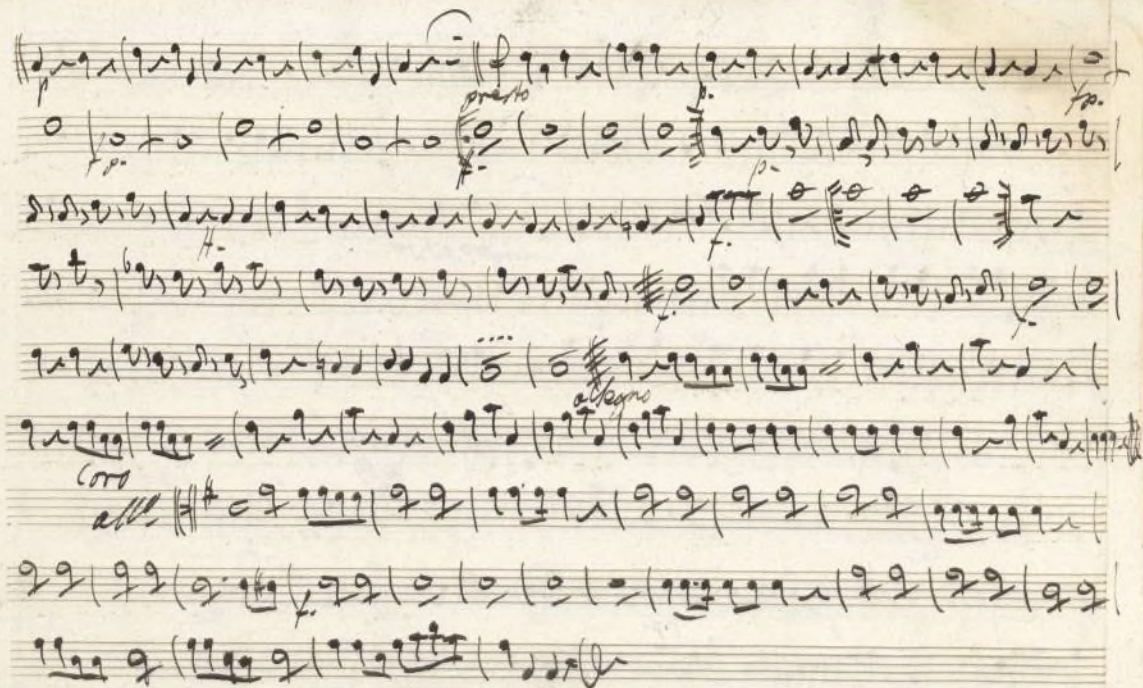 p presto p. fp.
fp. f. p.
f. f.
f. f.
allegro
Coro
allo.
f.